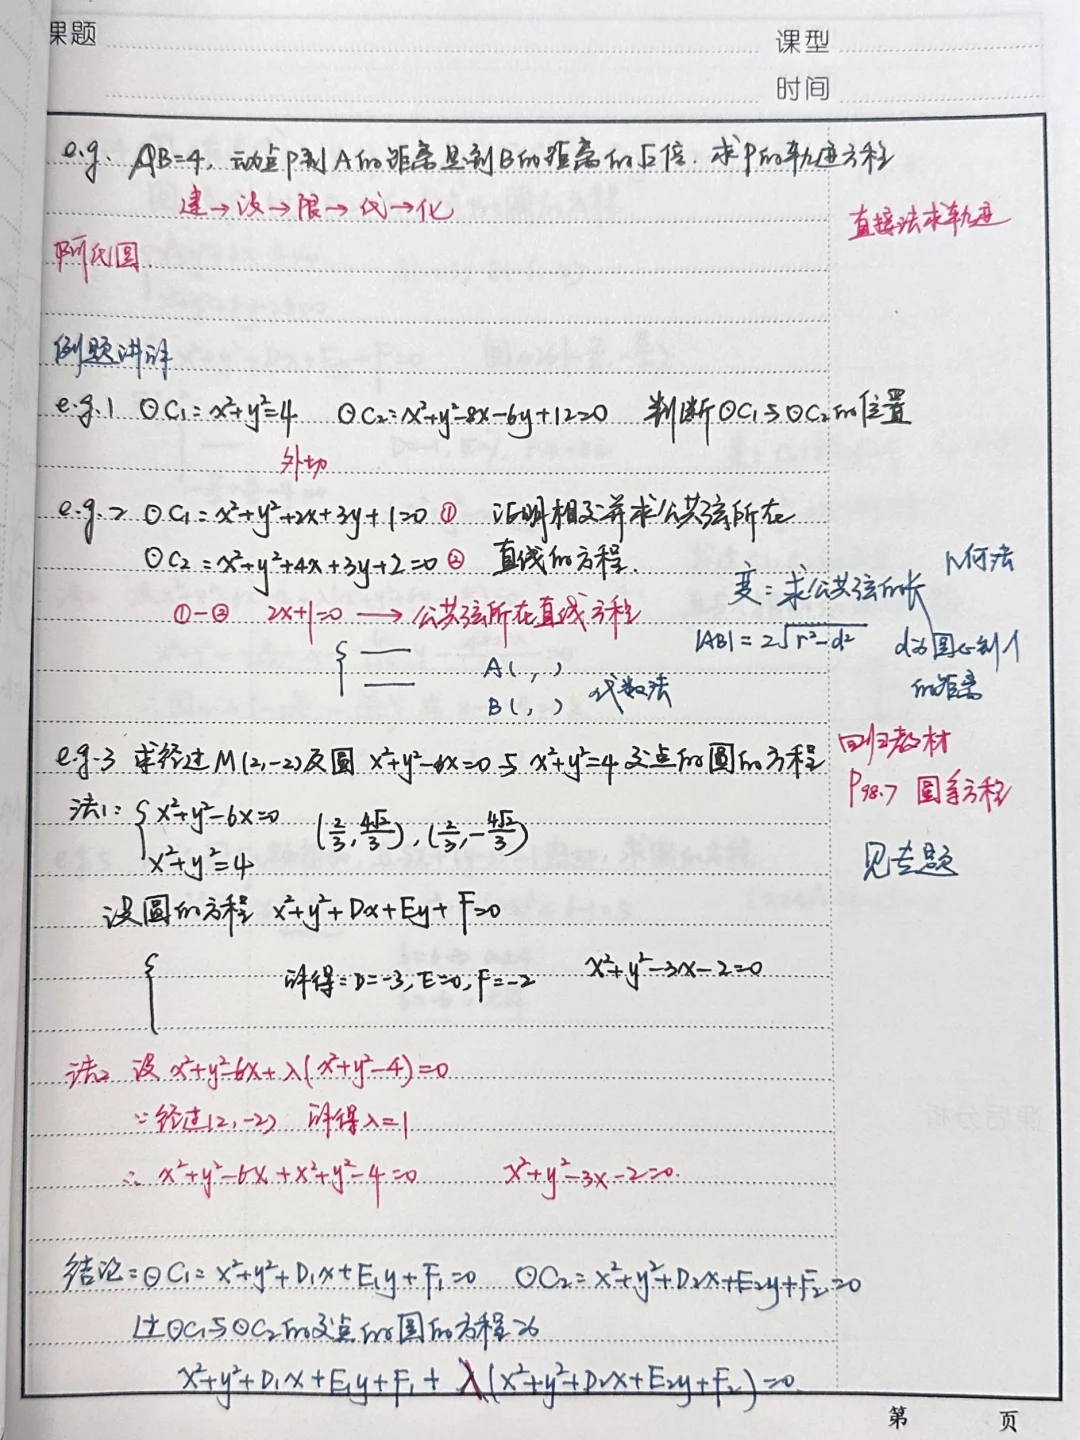 课题
课型
时间
e.g. AB=4,动点P到A的距离是到B的距离的√2倍.求P的轨迹方程
建→设→限→代→化
直接法求轨迹
阿氏圆
例题讲评
e.g.1 ⊙C₁:x²+y²=4 ⊙C₂:x²+y²-8x-6y+12=0 判断⊙C₁与⊙C₂的位置
外切
e.g.2 ⊙C₁:x²+y²+2x+3y+1=0 ① 证明相交并求公共弦所在
⊙C₂:x²+y²+4x+3y+2=0 ② 直线的方程.
几何法
变:求公共弦的长
①-② 2x+1=0 → 公共弦所在直线方程
|AB|=2√r²-d² d为圆心到l
的距离
{ A( , )
B( , ) 代数法
e.g.3 求经过M(2,-2)及圆 x²+y²-6x=0与 x²+y²=4交点的圆的方程
回归教材
P98.7 圆系方程
见专题
法1: { x²+y²-6x=0 (2/3, 4√2/3), (2/3, -4√2/3)
x²+y²=4
设圆的方程 x²+y²+Dx+Ey+F=0
{ 解得:D=-3,E=0,F=-2 x²+y²-3x-2=0
法2 设 x²+y²-6x+λ(x²+y²-4)=0
∵经过(2,-2) 解得λ=1
∴ x²+y²-6x+x²+y²-4=0 x²+y²-3x-2=0.
结论:⊙C₁:x²+y²+D₁x+E₁y+F₁=0 ⊙C₂:x²+y²+D₂x+E₂y+F₂=0
过⊙C₁与⊙C₂的交点的圆的方程为
x²+y²+D₁x+E₁y+F₁+λ(x²+y²+D₂x+E₂y+F₂)=0.
第 页